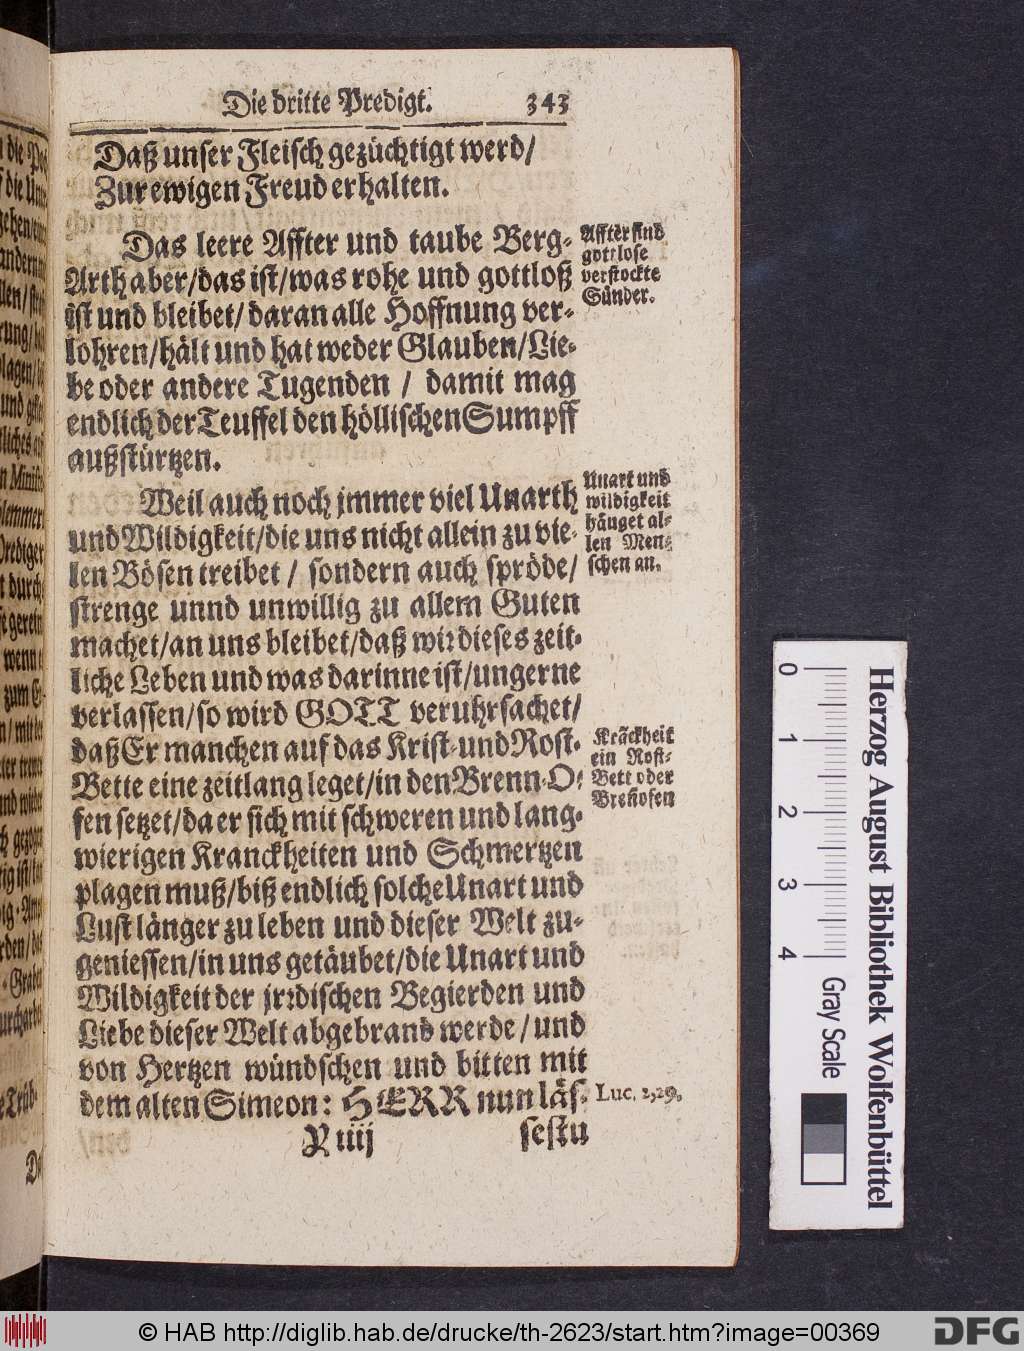 Die dritte Predigt. 343
Daß unser Fleisch gezüchtigt werd/
Zur ewigen Freud erhalten.
Das leere Affter und taube Berg-
Arth aber/das ist/was rohe und gottloß
ist und bleibet/daran alle Hoffnung ver-
lohren/hält und hat weder Glauben/Lie-
be oder andere Tugenden / damit mag
endlich der Teuffel den höllischen Sumpff
außstürtzen.
Affter sind
gottlose
verstockte
Sünder.
Weil auch noch jmmer viel Unarth
und Wildigkeit/die uns nicht allein zu vie-
len Bösen treibet / sondern auch spröde/
strenge unnd unwillig zu allem Guten
machet/an uns bleibet/daß wir dieses zeit-
liche Leben und was darinne ist/ungerne
verlassen/so wird GOTT veruhrsachet/
daß Er manchen auf das Krist- und Rost-
Bette eine zeitlang leget/in den Brenn-O-
fen setzet/da er sich mit schweren und lang-
wierigen Kranckheiten und Schmertzen
plagen muß/biß endlich solche Unart und
Lust länger zu leben und dieser Welt zu-
geniessen/in uns getäubet/die Unart und
Wildigkeit der jrrdischen Begierden und
Liebe dieser Welt abgebrand werde/und
von Hertzen wündschen und bitten mit
dem alten Simeon: HERR nun läs-
Unart und
wildigkeit
hänget al-
len Men-
schen an.
Krāckheit
ein Rost-
Bett oder
Breñofen
Luc. 2,29.
sestu
0 1 2 3 4
Gray Scale
Herzog August Bibliothek Wolfenbüttel
© HAB http://diglib.hab.de/drucke/th-2623/start.htm?image=00369
DFG